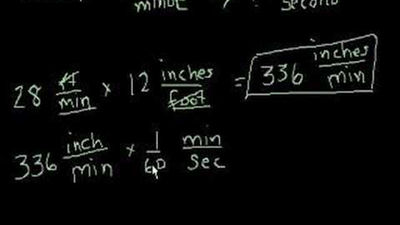 minute ? second
28 ft/min × 12 inches/foot = 336 inches/min
336 inch/min × 1/60 min/sec